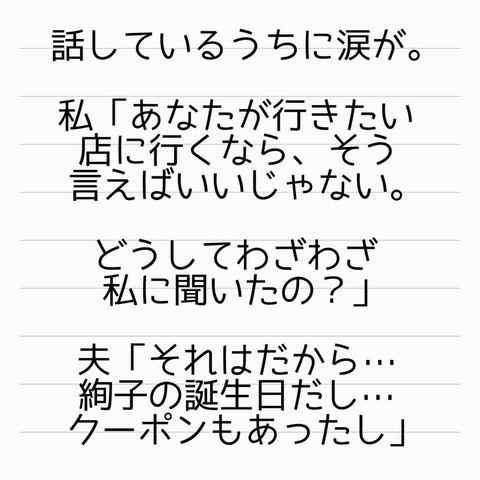 話しているうちに涙が。
私「あなたが行きたい
店に行くなら、そう
言えばいいじゃない。
どうしてわざわざ
私に聞いたの？」
夫「それはだから…
絢子の誕生日だし…
クーポンもあったし」